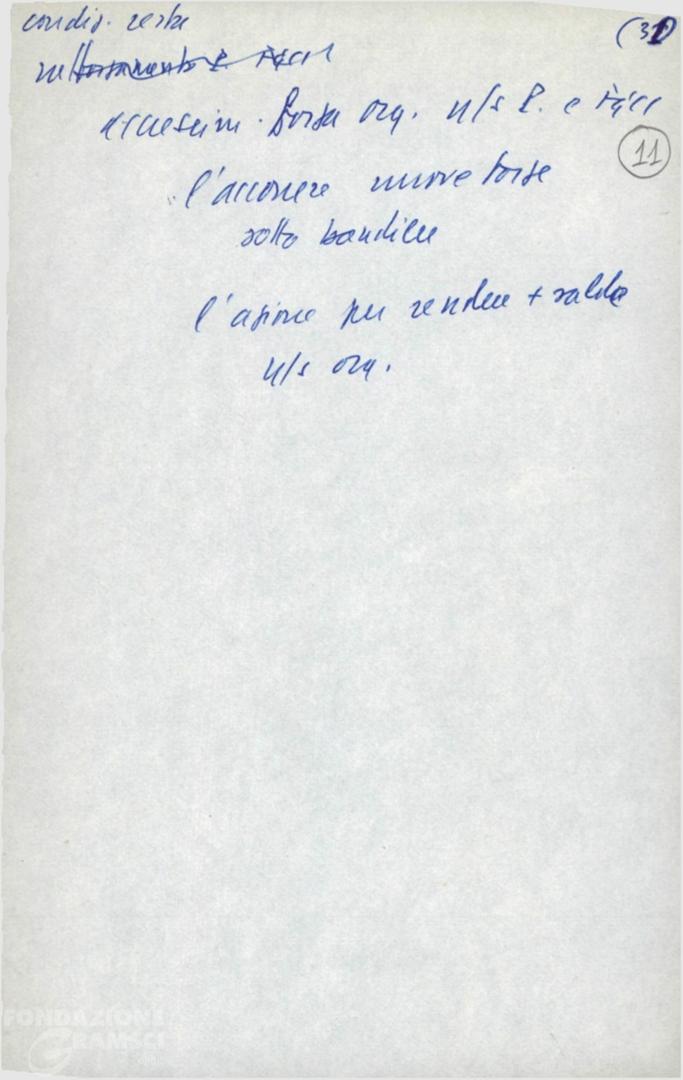 condiz. resta
(31)
nel rafforzamento P. e FGCI
accrescim. forza org. n/s P. e FGCI
11
l'accorrere nuove forze
sotto bandiere
l'azione per rendere + salda
n/s org.
FONDAZIONE
GRAMSCI